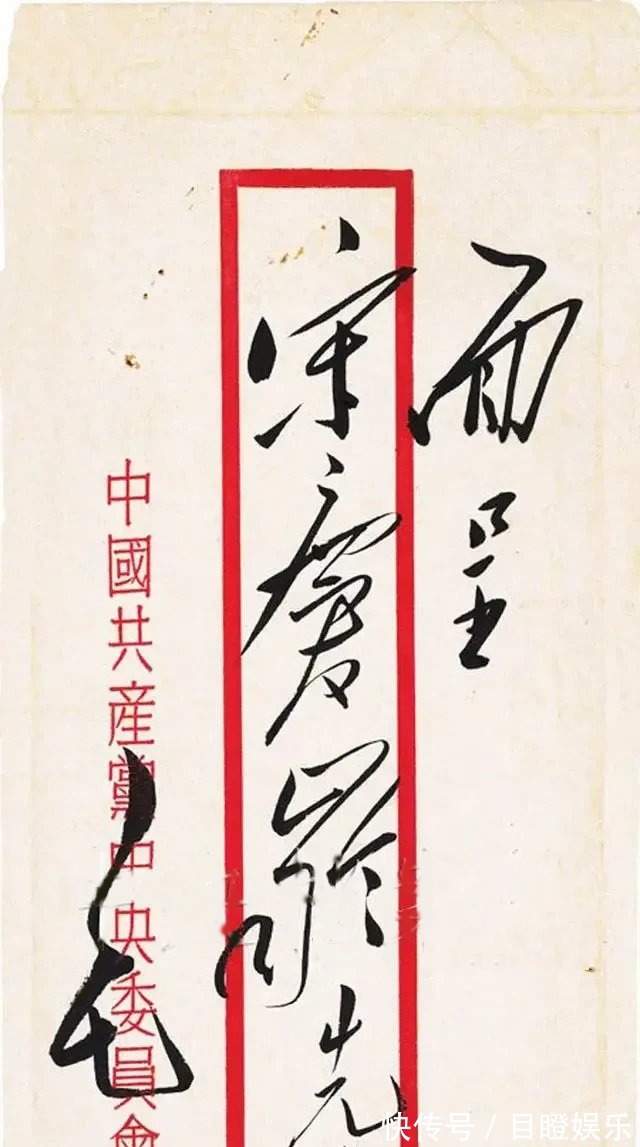 面呈
宋慶齡先
中國共產黨中央委員會
毛
快传号 / 目瞪娱乐